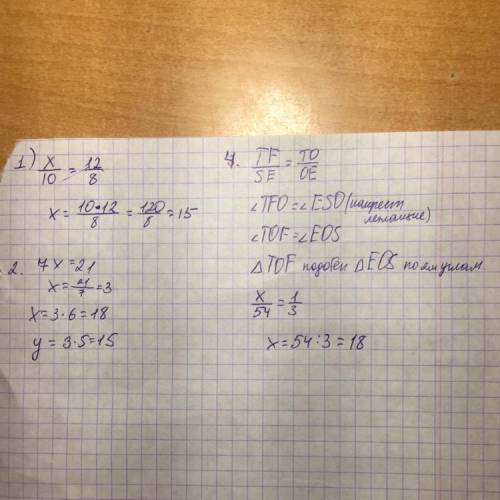 1) x/10 = 12/8
x = 10•12/8 = 120/8 = 15
2. 7x = 21
x = 21/7 = 3
x = 3·6 = 18
y = 3·5 = 15
4. TF/SE = TO/OE
∠TFO = ∠ESO (накрест
лежащие)
∠TOF = ∠EOS
△TOF подобен △EOS по 2м углам.
x/54 = 1/3
x = 54 : 3 = 18